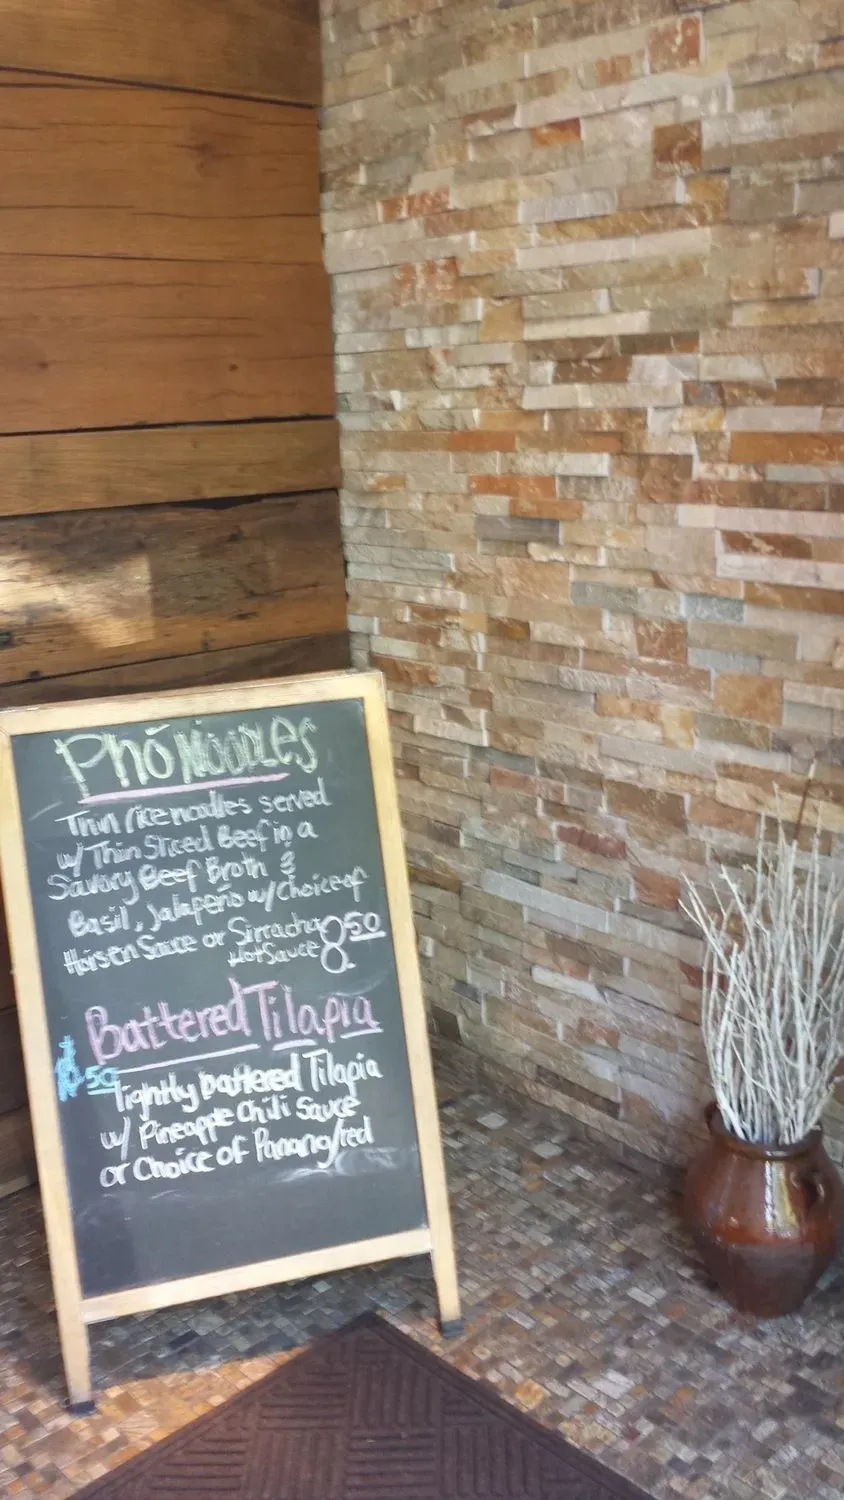 Phó Noodles
Thin rice noodles served
w/ Thin Sliced Beef in a
Savory Beef Broth &
Basil, Jalapeño w/ Choice of
Hoisen Sauce or Sirracha
Hot Sauce 8.50
Battered Tilapia
.50 lightly battered Tilapia
w/ Pineapple Chili Sauce
or Choice of Panang/red